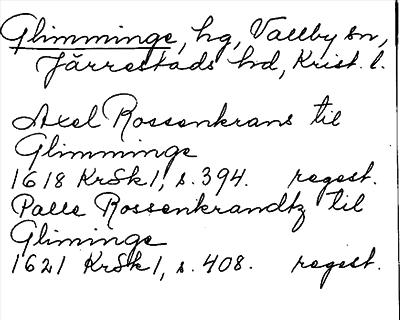 Glimminge, hg, Vallby sn,
Järrestads hd, Krist. l.
Axel Rossenkrans til
Glimminge
1618 KrSk 1, s. 394. regest.
Palle Rossenkrandtz til
Gliminge
1621 KrSk 1, s. 408. regest.